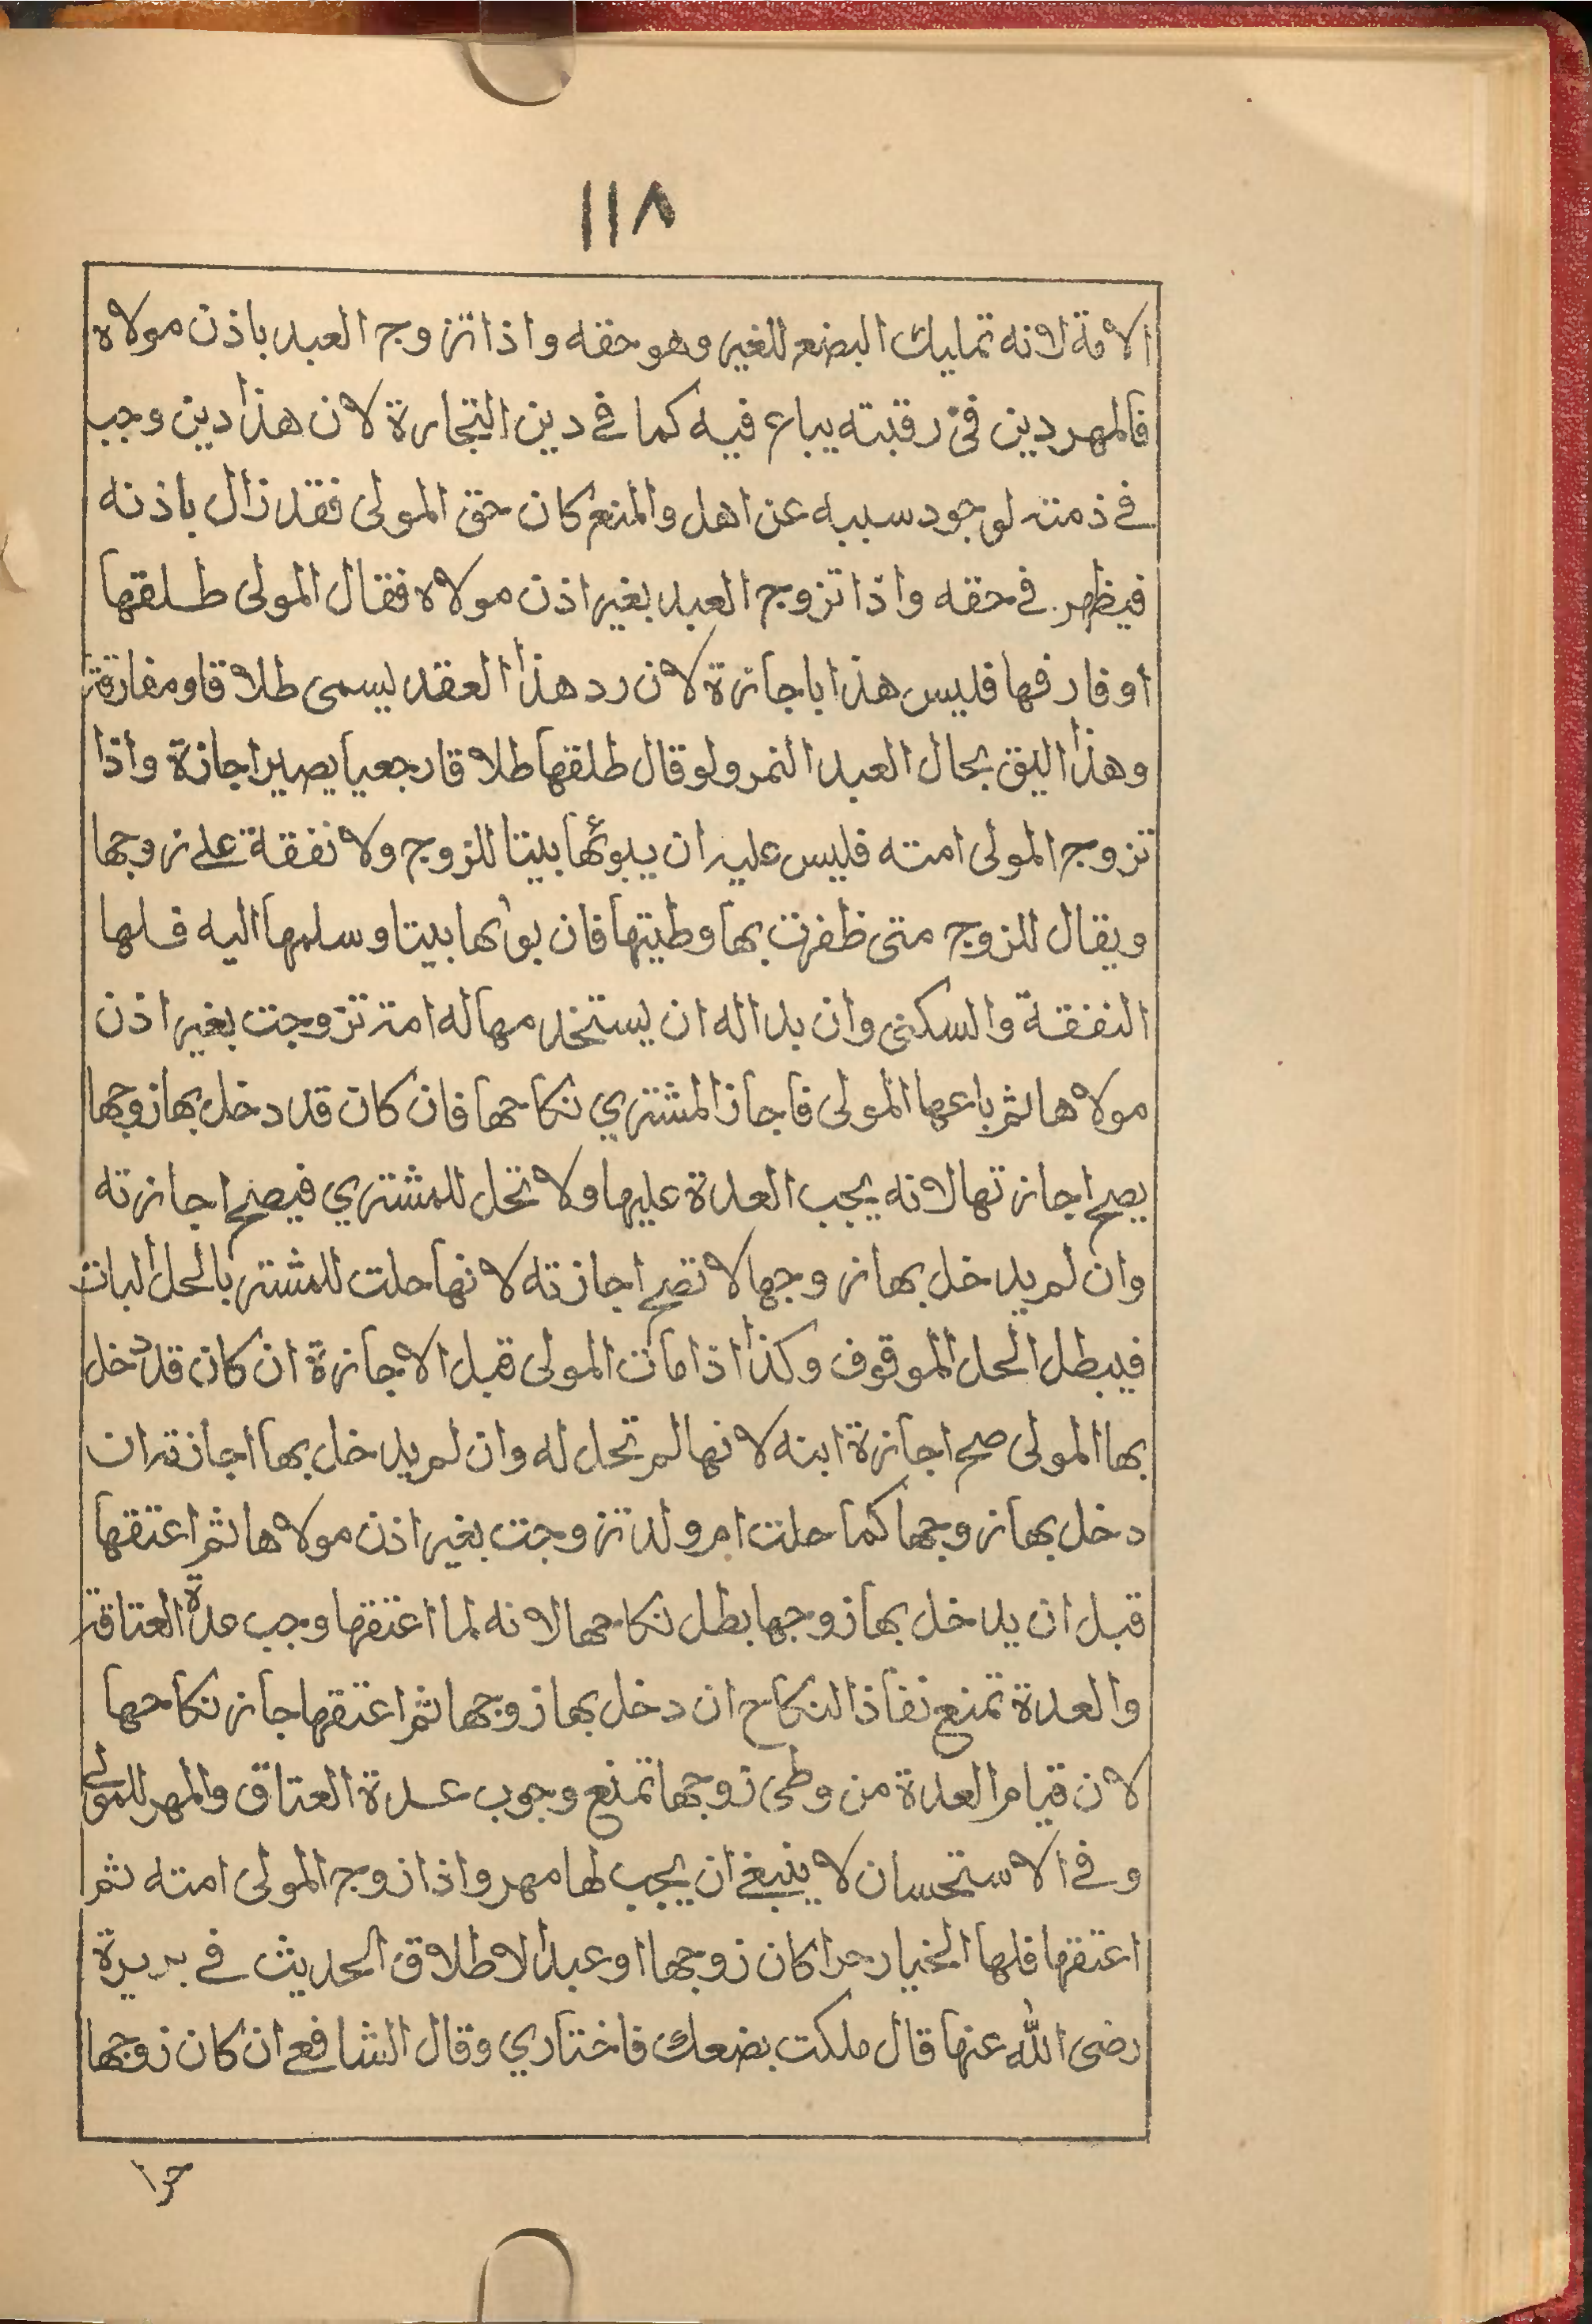 ١١٨
الامة لانه تمليك البضع للغير وهو حقه واذا تزوج العبد باذن مولاه
فالمهر دين فى رقبته يباع فيه كما فى دين التجارة لان هذا دين وجب
فى ذمته لوجود سببه عن اهل والمنع كان حق المولى فقد زال باذنه
فيظهر فى حقه واذا تزوج العبد بغير اذن مولاه فقال المولى طلقها
أو فارقها فليس هذا باجازة لان رد هذا العقد يسمى طلاقا ومفارقة
وهذا اليق بحال العبد النمر ولو قال طلقها طلاقا رجعيا يصير اجازة واذا
تزوج المولى امته فليس عليه ان يبوئها بيتا للزوج ولا نفقة على زوجها
ويقال للزوج متى ظفرت بها وطيتها فان بوأها بيتا وسلمها اليه فلها
النفقة والسكنى وان بدا له ان يستخدمها له امة تزوجت بغير اذن
مولاها ثم باعها المولى فاجاز المشتري نكاحها فان كان قد دخل بها زوجها
يصح اجازتها لانه يجب العدة عليها ولا تحل للمشتري فيصح اجازته
وان لم يدخل بها زوجها لا تصح اجازته لانها حلت للمشتر بالحل البات
فيبطل الحل الموقوف وكذا اذا مات المولى قبل الاجازة ان كان قد دخل
بها المولى صح اجازة ابنه لانها لم تحل له وان لم يدخل بها اجازته ان
دخل بها زوجها كما حلت ام ولد تزوجت بغير اذن مولاها ثم اعتقها
قبل ان يدخل بها زوجها بطل نكاحها لانه لما اعتقها وجب عدة العتاقة
والعدة تمنع نفاذ النكاح ان دخل بها زوجها ثم اعتقها جاز نكاحها
لان قيام العدة من وطى زوجها تمنع وجوب عدة العتاق والمهر للمولى
وفى الاستحسان لا ينبغى ان يجب لها مهر واذا زوج المولى امته ثم
اعتقها فلها الخيار حرا كان زوجها او عبدا لاطلاق الحديث فى بريرة
رضى الله عنها قال ملكت بضعك فاختاري وقال الشافعى ان كان زوجها
حرا